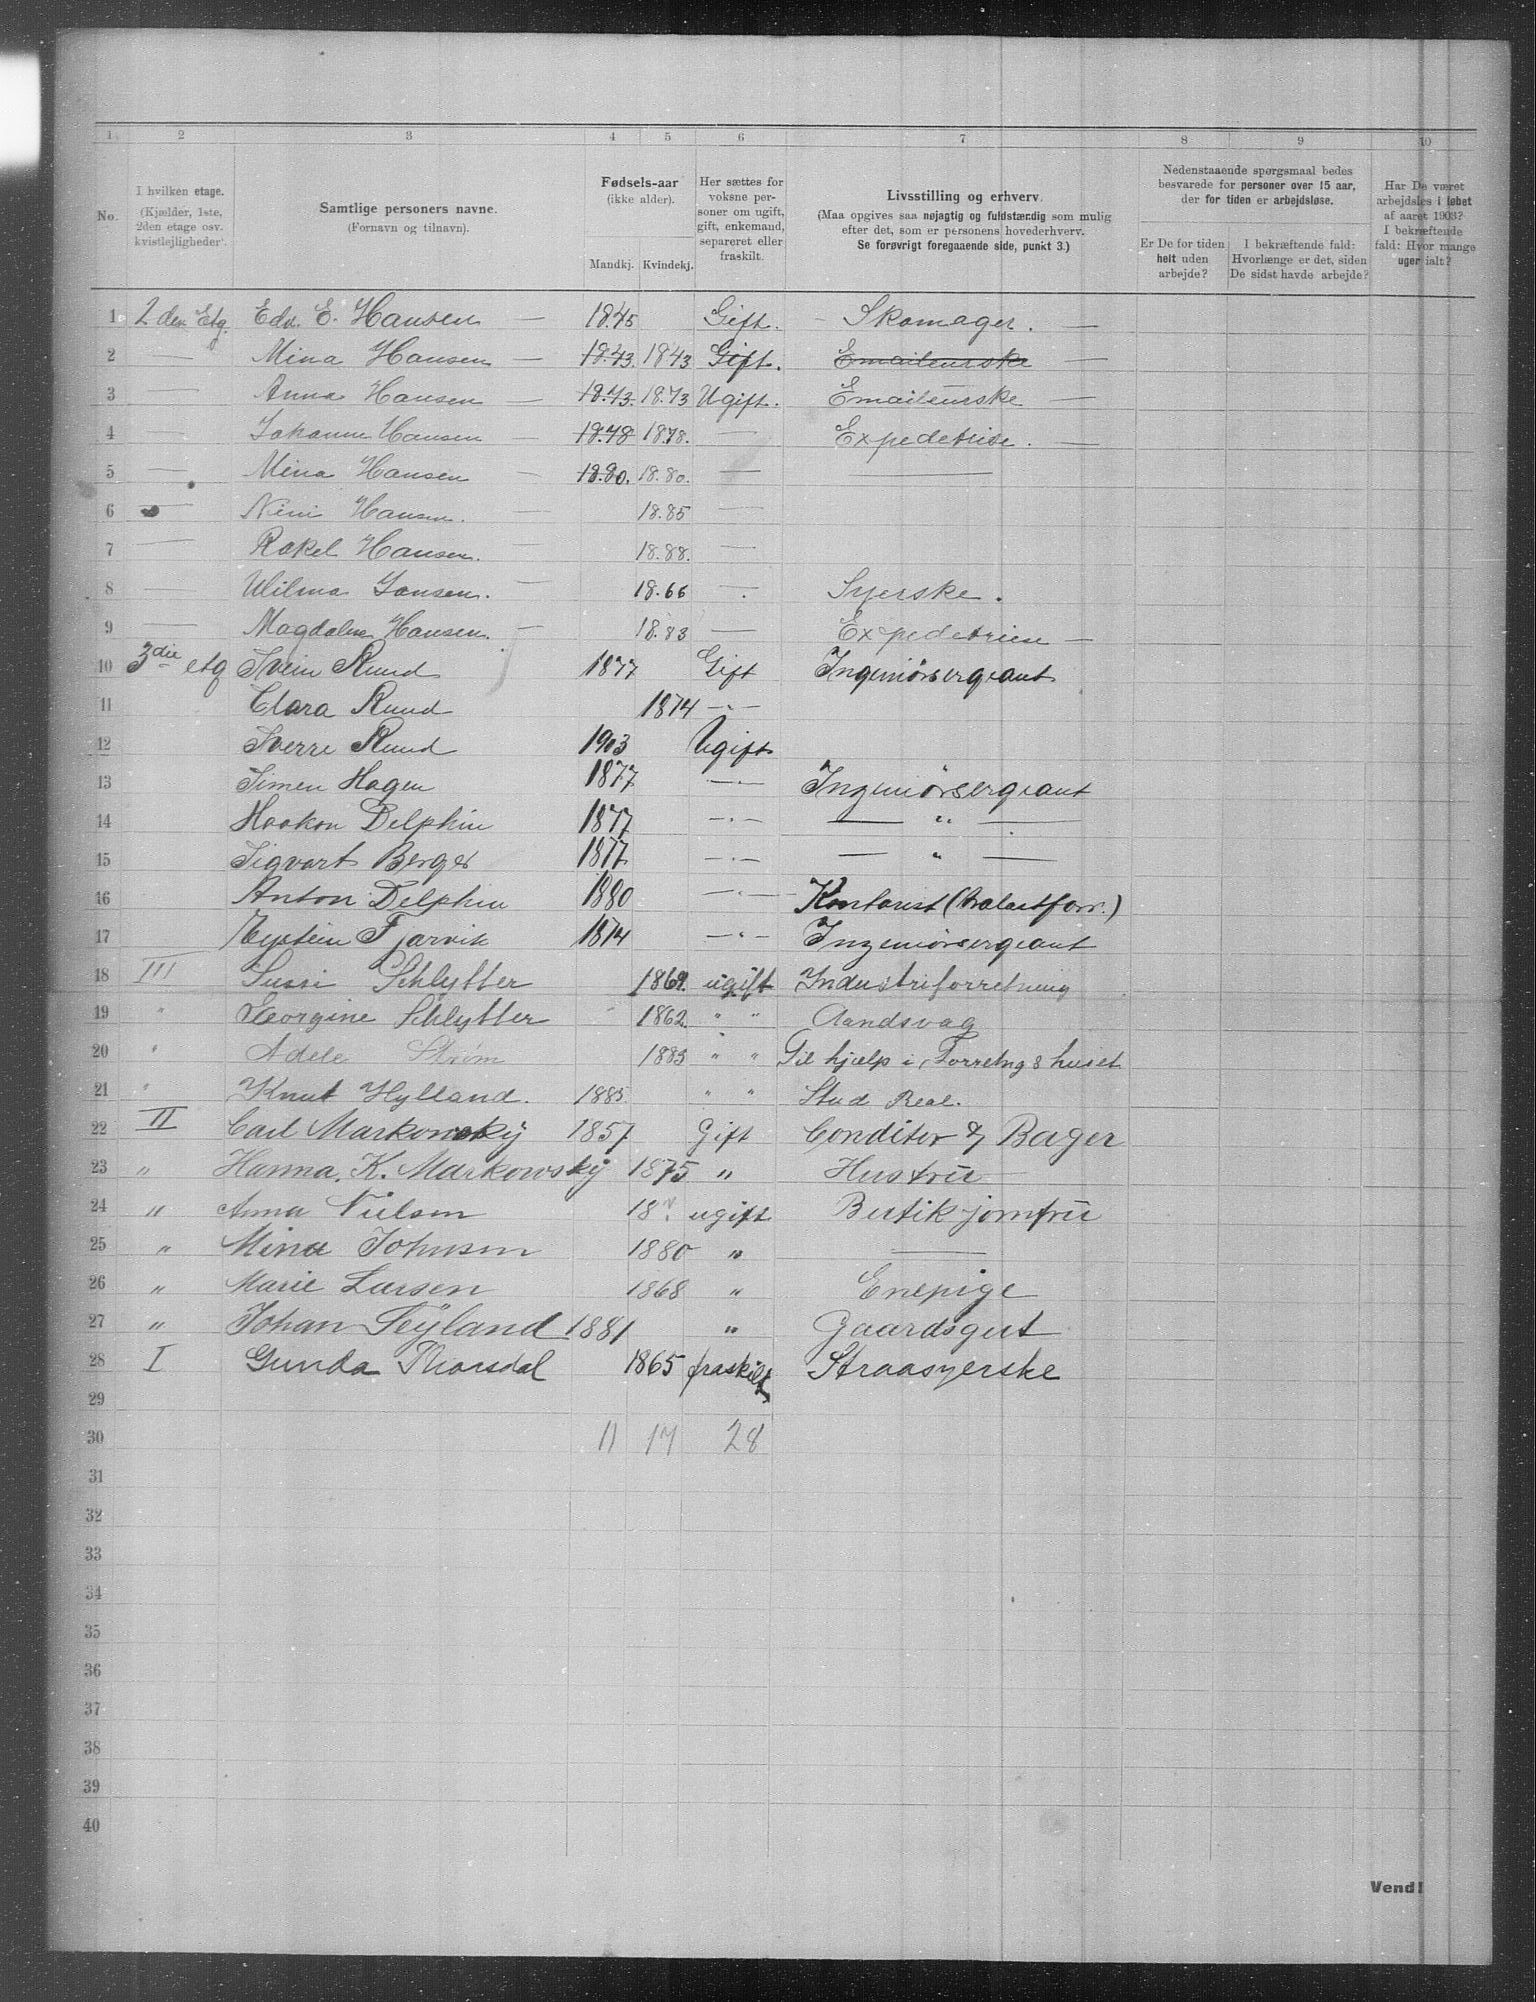 1 2 3 4 5 6 7 8 9 10
No. I hvilken etage. (Kjælder, 1ste, 2den etage osv. kvistleiligheder). Samtlige personers navne. (Fornavn og tilnavn). Fødsels-aar (ikke alder). Mandkj. Kvindekj. Her sættes for voksne personer om ugift, gift, enkemand, separeret eller fraskilt. Livsstilling og erhverv. (Maa opgives saa nøjagtig og fuldstændig som mulig efter det, som er personens hovederhverv. Se forøvrigt foregaaende side, punkt 3.) Nedenstaaende spørgsmaal bedes besvarede for personer over 15 aar, der for tiden er arbejdsløse. Er De for tiden helt uden arbejde? I bekræftende fald: Hvorlænge er det, siden De sidst havde arbejde? Har De været arbejdsløs i løbet af aaret 1903? I bekræftende fald: Hvor mange uger ialt?
1 2den Etg. Edv. E. Hansen — 1845 Gift. – Skomager. —
2 — Mina Hansen — 18.43. 1843 Gift. Emaileurske —
3 — Anna Hansen — 18.73. 18.73 Ugift. Emaileurske —
4 — Johanne Hansen — 18.78 18.78. — Expedetrise. —
5 — Mina Hansen — 18.80. 18.80. — —
6 — Nini Hansen. 18.85 —
7 — Rakel Hansen. 18.88. —
8 — Wilma Jansen. — 18.66 . Syerske.
9 — Magdalene Hansen. — 18.83 — Expedetriese —
10 3die etg Svein Ruud 1877 Gift Ingeniørsergeant
11 Clara Ruud 1874 — " —
12 Sverre Ruud 1903 Ugift
13 Simen Hagen 1877 — " — Ingeniørsergeant
14 Haakon Delphin 1877 — " — — " —
15 Sigvart Berger 1877 — " — — " —
16 Anton Delphin 1880 — " — Kontorist
17 Eystein Tjarvik 1874 — " — Ingeniørsergeant
18 III Sussi Schlytter 1869. ugift Industriforretning
19 " Georgine Schlytter 1862. " " Aandsvag
20 " Adele Strøm 1883 " " Til hjælp i Forretng & huset
21 " Knut Hylland. 1885 " " Stud Real.
22 II Carl Markowsky 1857 Gift Conditor & Bager
23 " Hanna. K. Markowsky 1875 " Hustru
24 " Anna Nielsen 18 ugift Butikjomfru
25 " Mina Johnsen 1880 " —
26 " Marie Larsen 1868 " Enepige
27 " Johan Seyland 1881 " Gaardsgut
28 I Gunda Thorsdal 1865 fraskilt Straasyerske
29
30 11 17 28
31
32
33
34
35
36
37
38
39
40
Vend!